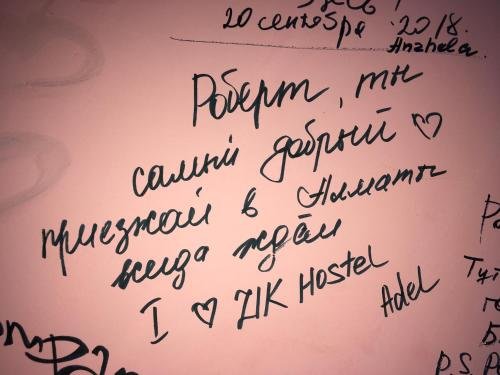 20 сентября 2018.
Anzhela.
Роберт, ты
самый добрый ♡
приезжай в Алматы
всегда ждём
I ♡ ZIK Hostel
Adel
P.S. Р